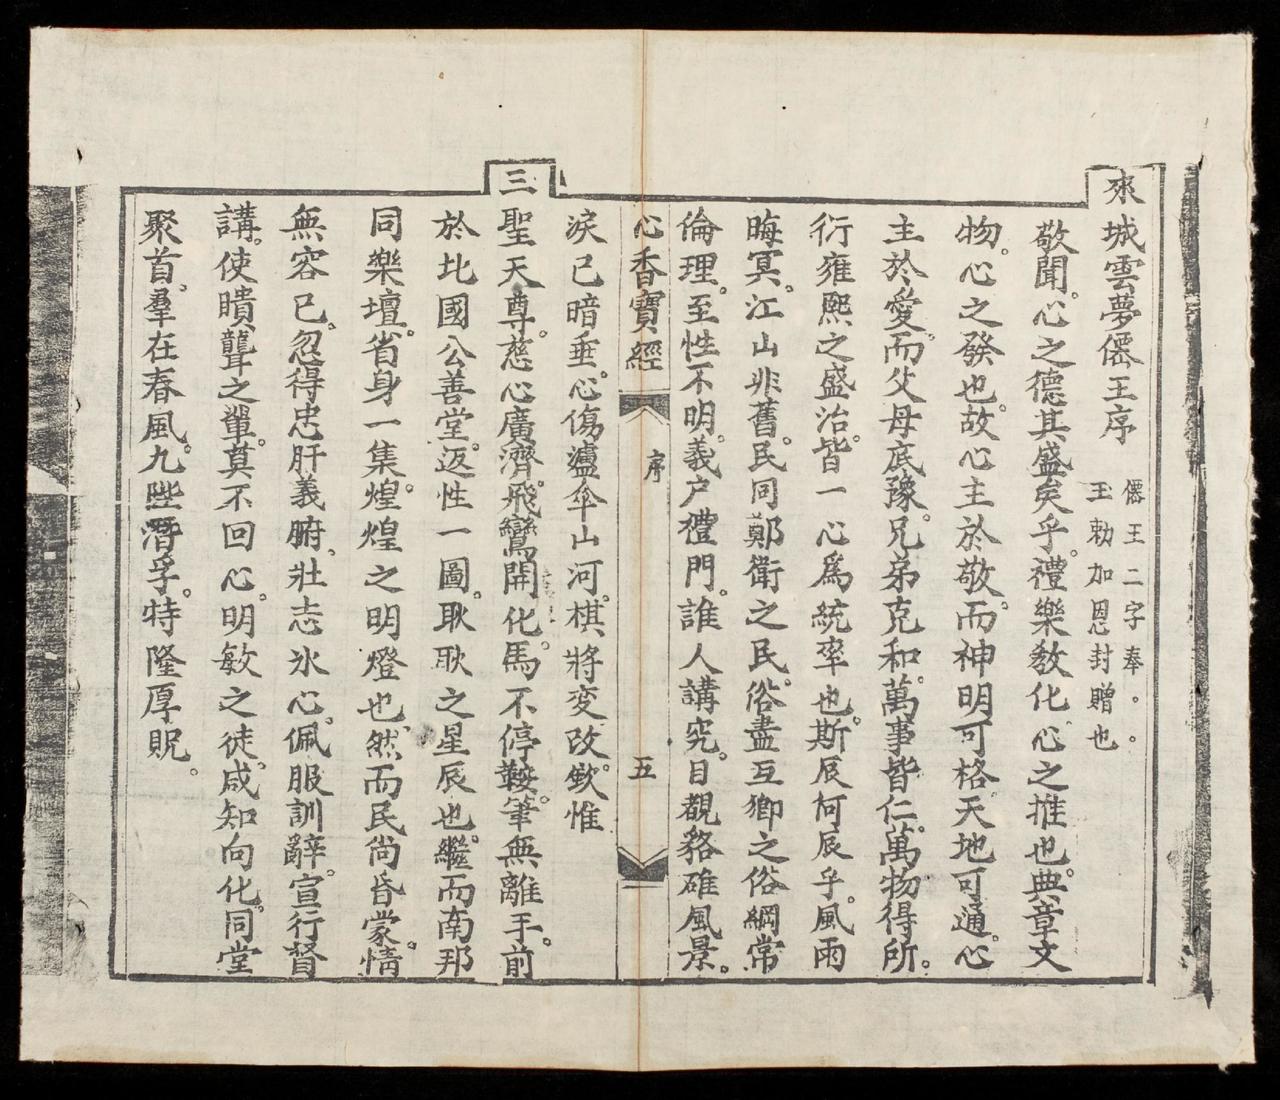 來城雲夢僊王序
僊王二字奉。。
玉勅加恩封贈也
敬聞。心之德其盛矣乎。禮樂教化心之推也。典章文
物。心之發也。故心主於敬。而神明可格。天地可通。心
主於愛。而父母底豫。兄弟克和。萬事皆仁。萬物得所。
衍雍熙之盛治。皆一心爲統率也。斯辰何辰乎。風雨
晦冥。江山非舊。民同鄭衛之民。俗盡互鄉之俗。綱常
倫理。至性不明。義户禮門。誰人講究。目覩貉碓風景。
心香寶經 序 五
淚已暗垂。心傷瀘傘山河。棋將变改。欸惟
三聖天尊。慈心廣濟。飛鸞開化。馬不停鞍。筆無離手。前
於北國公善堂。返性一圖。耿耿之星辰也。繼而南邦
同樂壇。省身一集。煌煌之明燈也。然而民尚昏蒙。情
無容已。忽得忠肝義腑。壯志氷心。佩服訓辭。宣行督
講。使聵聾之輩。莫不回心。明敏之徒。咸知向化。同堂
聚首。羣在春風。九陛潛孚。特隆厚貺。